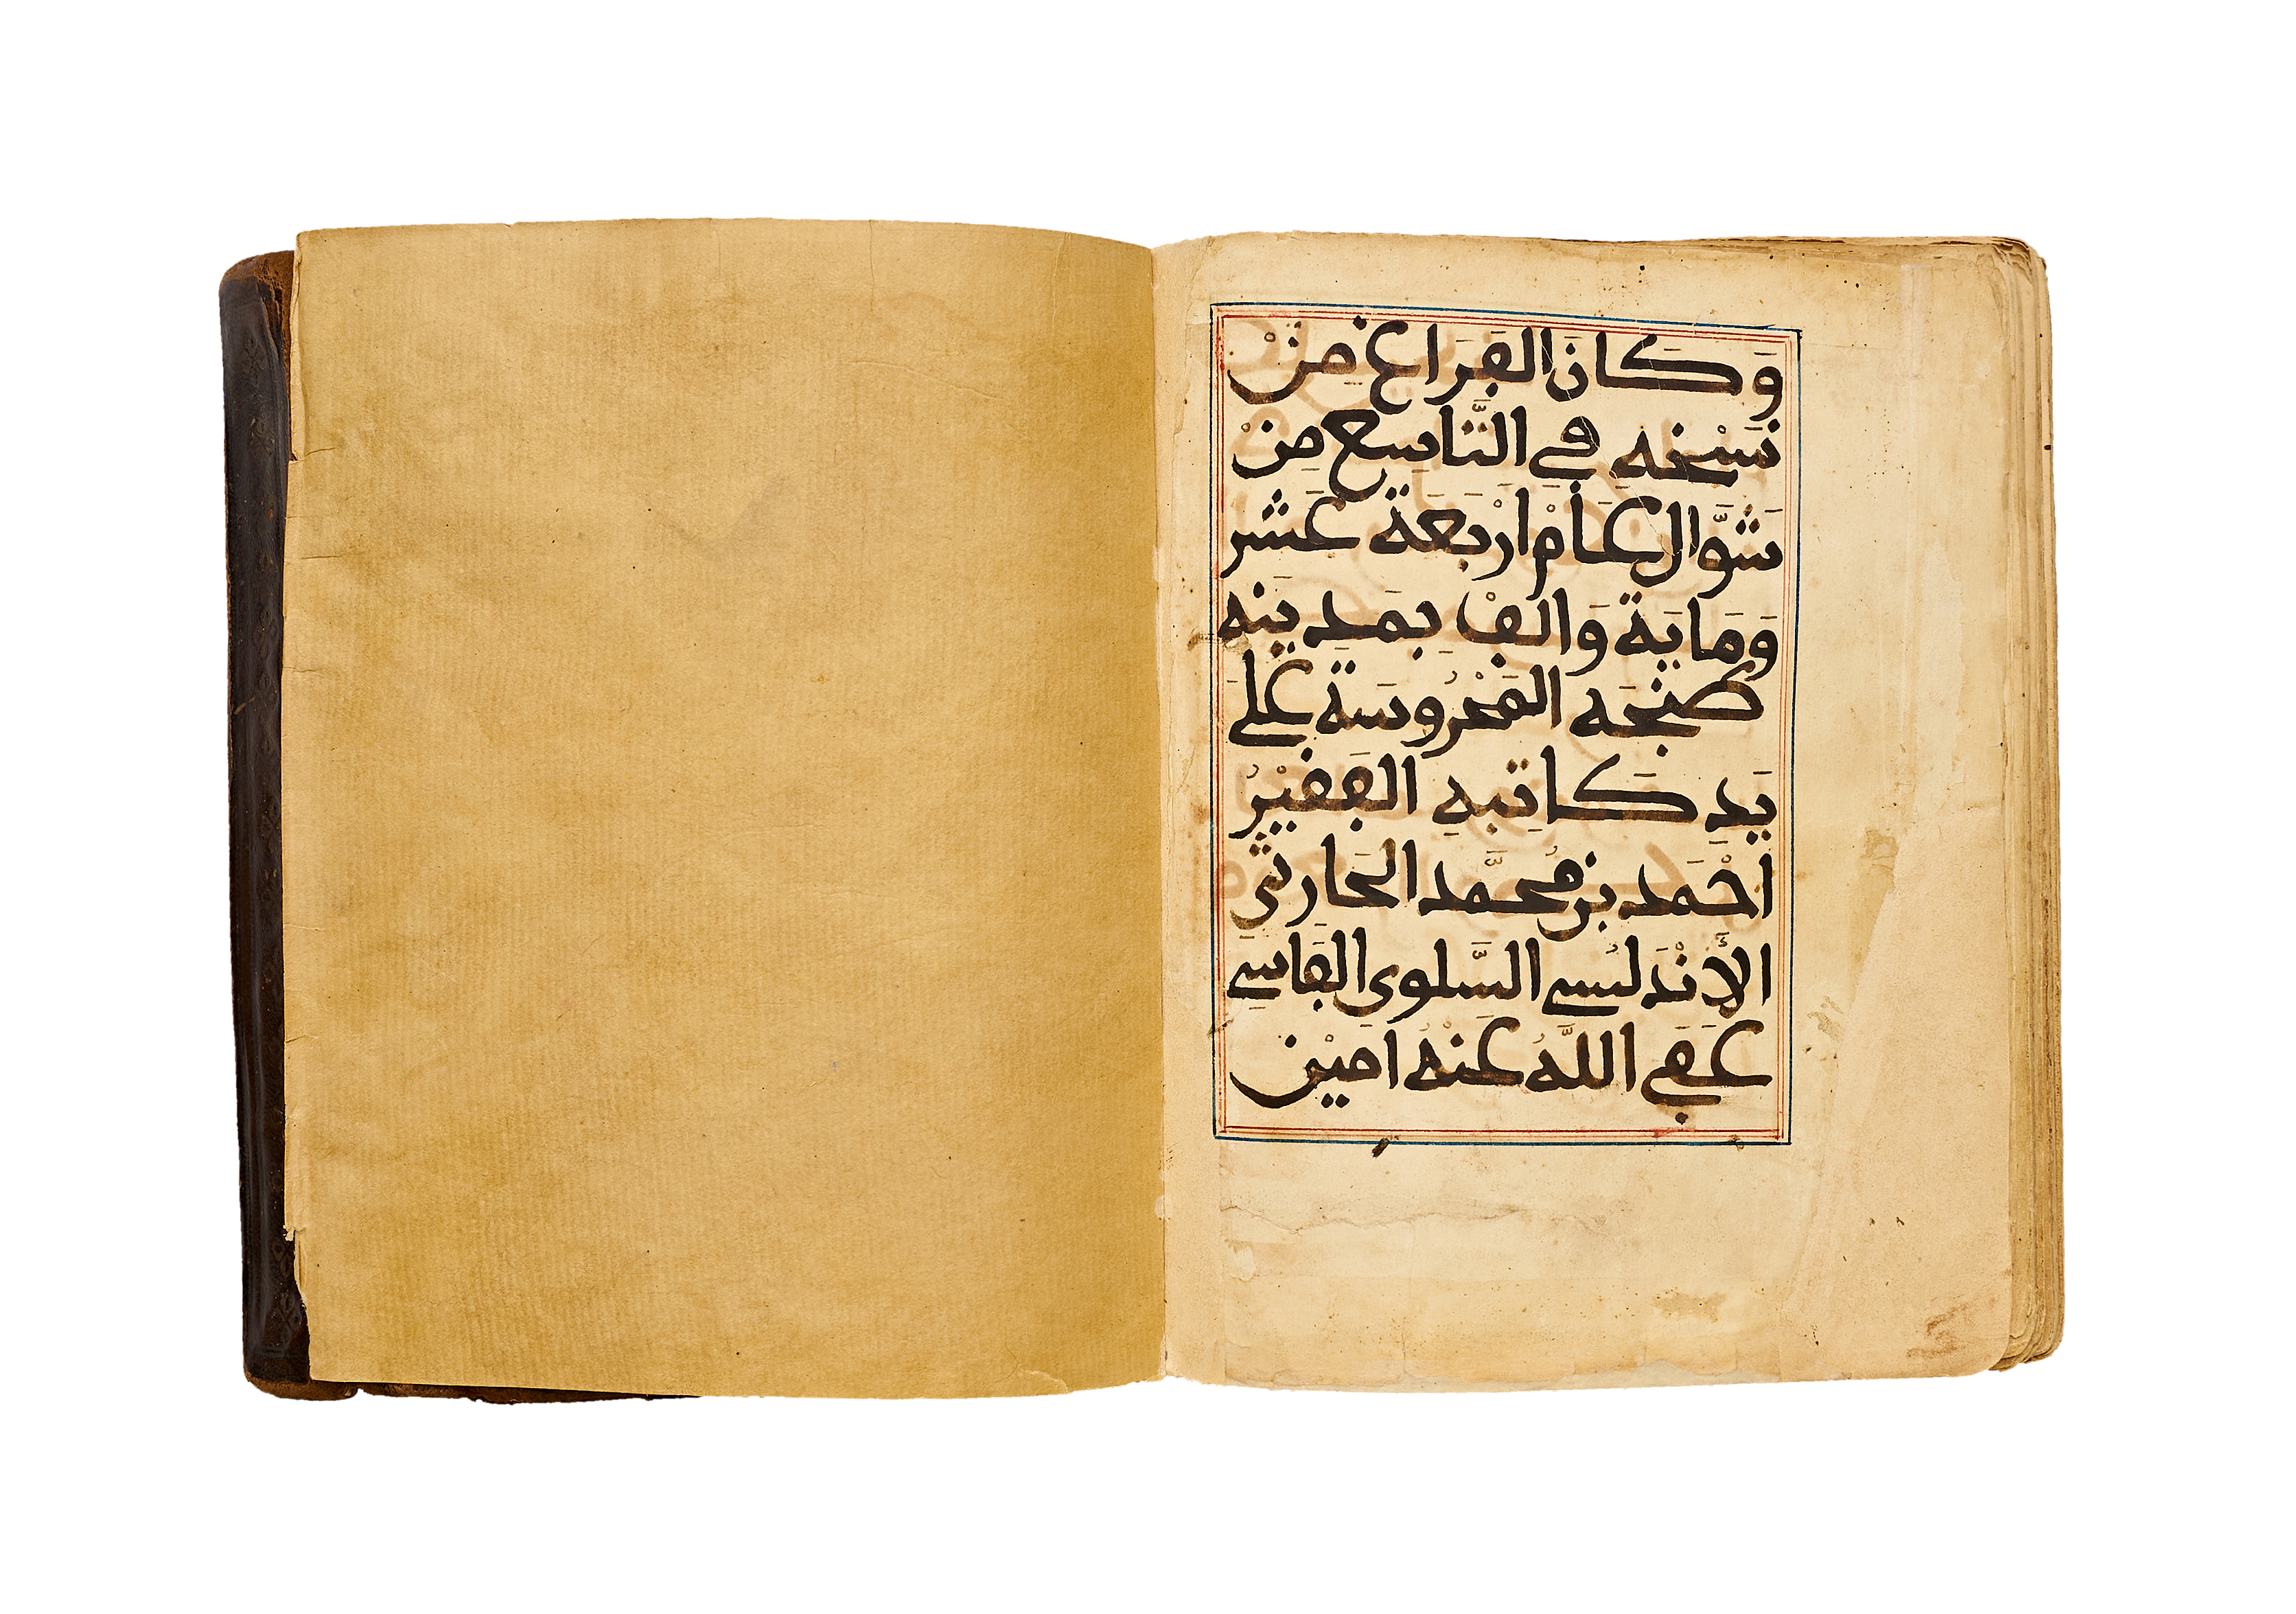 وَكَانَ الفَرَاغ مِنْ
نَسْخه فِي التَّاسِع مِنْ
شَوَّال عَامْ ارْبَعَة عَشر
وَمَايَة وَالفْ بِمَدِينَه
طنْجَه المَحْرُوسَة عَلَى
يَدِ كَاتِبهِ الفَقِيْرُ
احْمَد بن مُحَمَّد الحَارثي
الأَنْدَلُسي السَّلَوى الفَاسِي
عَفَى اللَّهُ عَنْهُ امَيْن